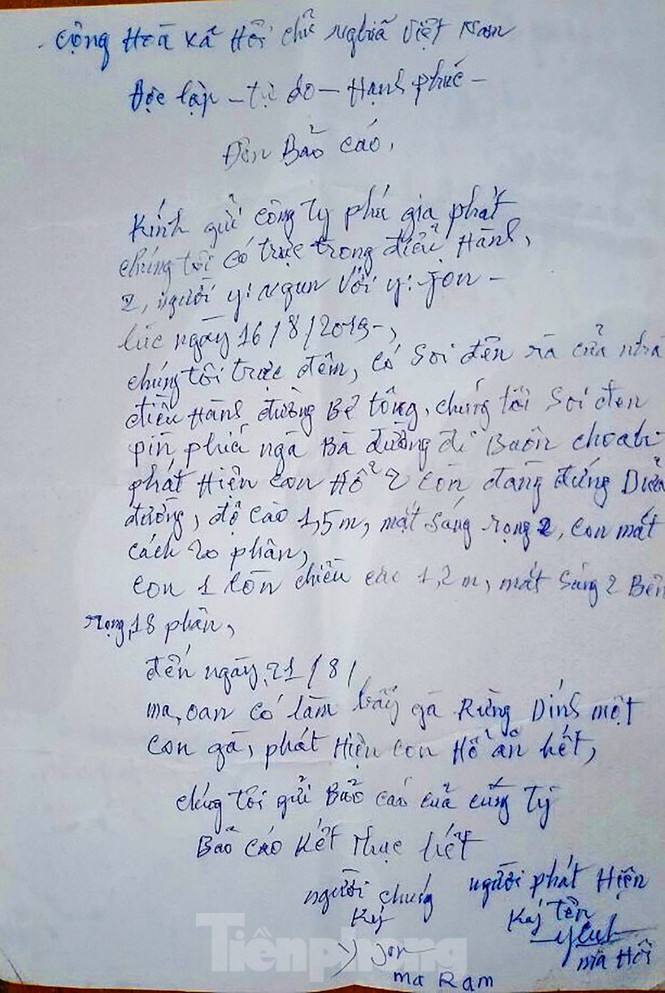 Cộng Hoà Xã Hội chủ nghĩa Việt Nam
Độc lập - tự do - Hạnh phúc -
Đơn Bảo cáo,
Kính gửi công ty phú gia phát
chúng tôi có trực trong điều Hành,
2, người y: Ngun với y: Jon -
lúc ngày 16/8/2019-,
chúng tôi trực đêm, có soi đèn ra của nhà
điều Hành đường Bê tông, chúng tôi Soi đèn
pin phía ngã Ba đường đi Buôn choah
phát Hiện con Hổ 2 con đang đứng Dưới
đường, độ cao 1,5m, mắt sáng rọng 2, con mắt
cách 20 phân,
con 1 lớn chiều cao 1,2m, mắt sáng 2 Bên
rọng, 18 phân,
đến ngày, 21/8/
ma, oan có làm bẫy gà Rừng Dính một
con gà, phát Hiện con Hổ ăn hết,
chúng tôi gửi Bảo cáo của công Ty
Bảo cáo Kết thục hết
người chúng
người phát Hiện
Ký
Ký tên
y Jon
ma Ram
ma Hồi
Tiềnphong